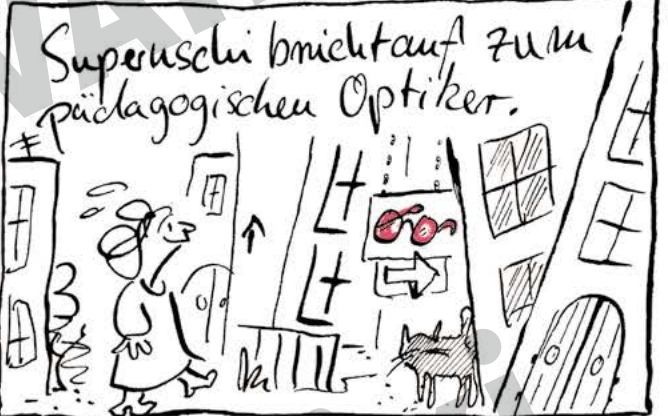 Superuschi bricht auf zum
pädagogischen Optiker.